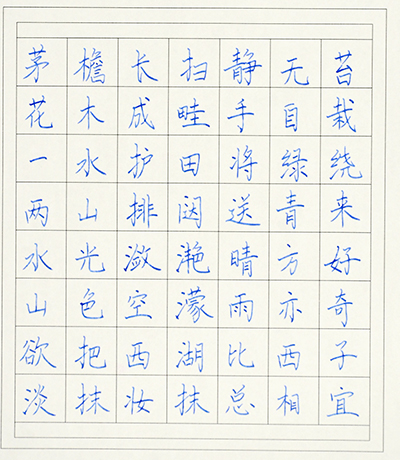 茅檐长扫静无苔
花木成畦手自栽
一水护田将绿绕
两山排闼送青来
水光潋滟晴方好
山色空濛雨亦奇
欲把西湖比西子
淡抹妆抹总相宜